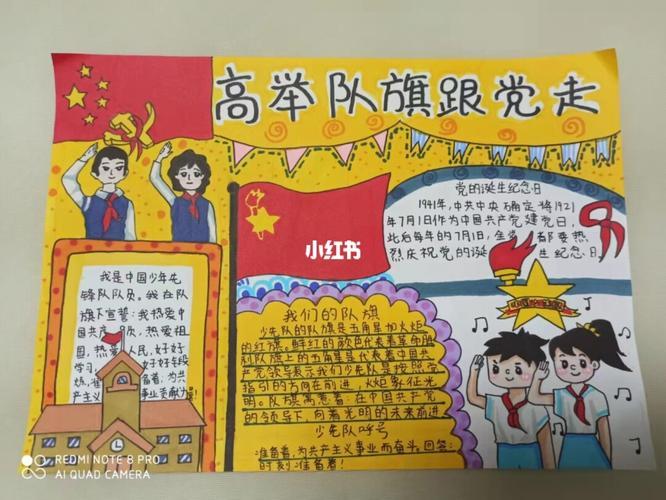 高举队旗跟党走
党的诞生纪念日
1941年,中共中央确定将1921
年7月1日作为中国共产党建党日,
此后每年的7月1日,全党都要热
烈庆祝党的诞生纪念日.
小红书
我是中国少年先
锋队队员,我在队
旗下宣誓:我热爱中
国共产党,热爱祖
国,热爱人民,好好
学习,好好锻
炼,准备着:为共
产主义事业贡献力
我们的队旗
少先队的队旗是五角星加火炬
的红旗。鲜红的颜色代表着革命胜
利队旗上的五角星星代表着中国共
产党领导表示我们少先队是按照党
指引的方向在前进,火炬象征光
明。队旗寓意着:在中国共产党
的领导下,向着光明的未来前进
少先队呼号
准备着,为共产主义事业而奋斗。回答:
时刻准备着!
REDMI NOTE 8 PRO
AI QUAD CAMERA